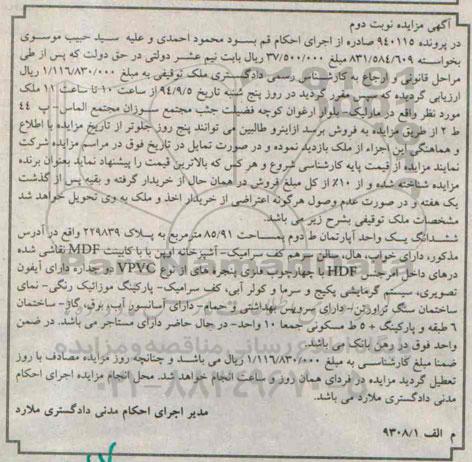 آگهی مزایده نوبت دوم
در پرونده ۹۴۰۱۱۵ صادره از اجرای احکام قم بسود محمود احمدی و علیه سید حبیب موسوی
بخواسته ۸۳۱/۵۸۴/۶۰۹ ریال و مبلغ ۳۷/۵۰۰/۰۰۰ ریال بابت نیم عشر دولتی در حق دولت که پس از طی
مراحل قانونی و ارجاع به کارشناس رسمی دادگستری ملک توقیفی به مبلغ ۱/۱۱۶/۸۳۰/۰۰۰ ریال
ارزیابی گردیده که سپس مقرر گردید در روز پنج شنبه تاریخ ۹۴/۹/۵ از ساعت ۱۰ تا ساعت ۱۱ ملک
مورد نظر واقع در مارلیک- بلوار ارغوان کوچه فضیلت جنب مجتمع سوزان مجتمع الماس- پ ۴۴
ط ۲ از طریق مزایده به فروش برسد ازاینرو طالبین می توانند پنج روز جلوتر از تاریخ مزایده با اطلاع
و هماهنگی این اجراء از ملک بازدید نموده و در صورت تمایل در تاریخ فوق در مراسم مزایده شرکت
نمایند مزایده از قیمت پایه کارشناسی شروع و هر کس که بالاترین قیمت را پیشنهاد نماید بعنوان برنده
مزایده شناخته شده و از ۱۰٪ از کل مبلغ فروش در همان حال از خریدار گرفته و بقیه پس از گذشت
یک هفته و در صورت عدم وصول هرگونه اعتراضی از خریدار اخذ و ملک به وی تحویل خواهد شد
مشخصات ملک توقیفی بشرح زیر می باشد.
ششدانگ یک واحد آپارتمان ط دوم بمساحت ۸۵/۹۱ مترمربع به پلاک ۲۲۹۸۳۹ واقع در آدرس
مذکور، دارای خواب، هال، سالن سرهم کف سرامیک- آشپزخانه اوپن با با کابینت MDF نقاشی شده
درهای داخل از جنس HDF با چهارچوب فلزی پنجره های از نوع VPVC دو جداره دارای آیفون
تصویری، سیستم گرمایشی پکیج و سرما و کولر آبی، کف سرامیک- پارکینگ موزائیک رنگی- نمای
ساختمان سنگ تراورتن- دارای سرویس بهداشتی و حمام- دارای آسانسور آب، برق، گاز- ساختمان
۶ طبقه و پارکینگ + ۵ ط مسکونی جمعا ۱۰ واحد- در حال حاضر دارای مستاجر می باشد. در ضمن
واحد فوق در رهن بانک می باشد.
ضمنا مبلغ کارشناسی به مبلغ ۱/۱۱۶/۸۳۰/۰۰۰ ریال می باشد و چنانچه روز مزایده مصادف با روز
تعطیل گردید مزایده در فردای همان روز و ساعت انجام خواهد شد. محل انجام مزایده اجرای احکام
مدنی دادگستری ملارد می باشد.
مدیر اجرای احکام مدنی دادگستری ملارد
م الف ۹۳۰۸/۱